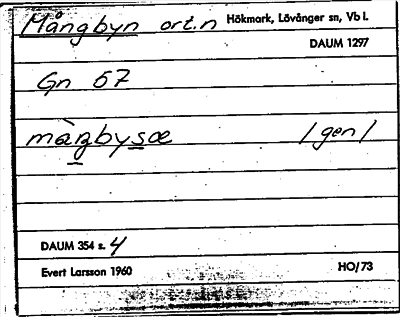 Mångbyn ort.n Hökmark, Lövånger sn, Vb l.
DAUM 1297
Gn 67
màŋbysæ /gen/
DAUM 354 s. 4
Evert Larsson 1960 HO/73